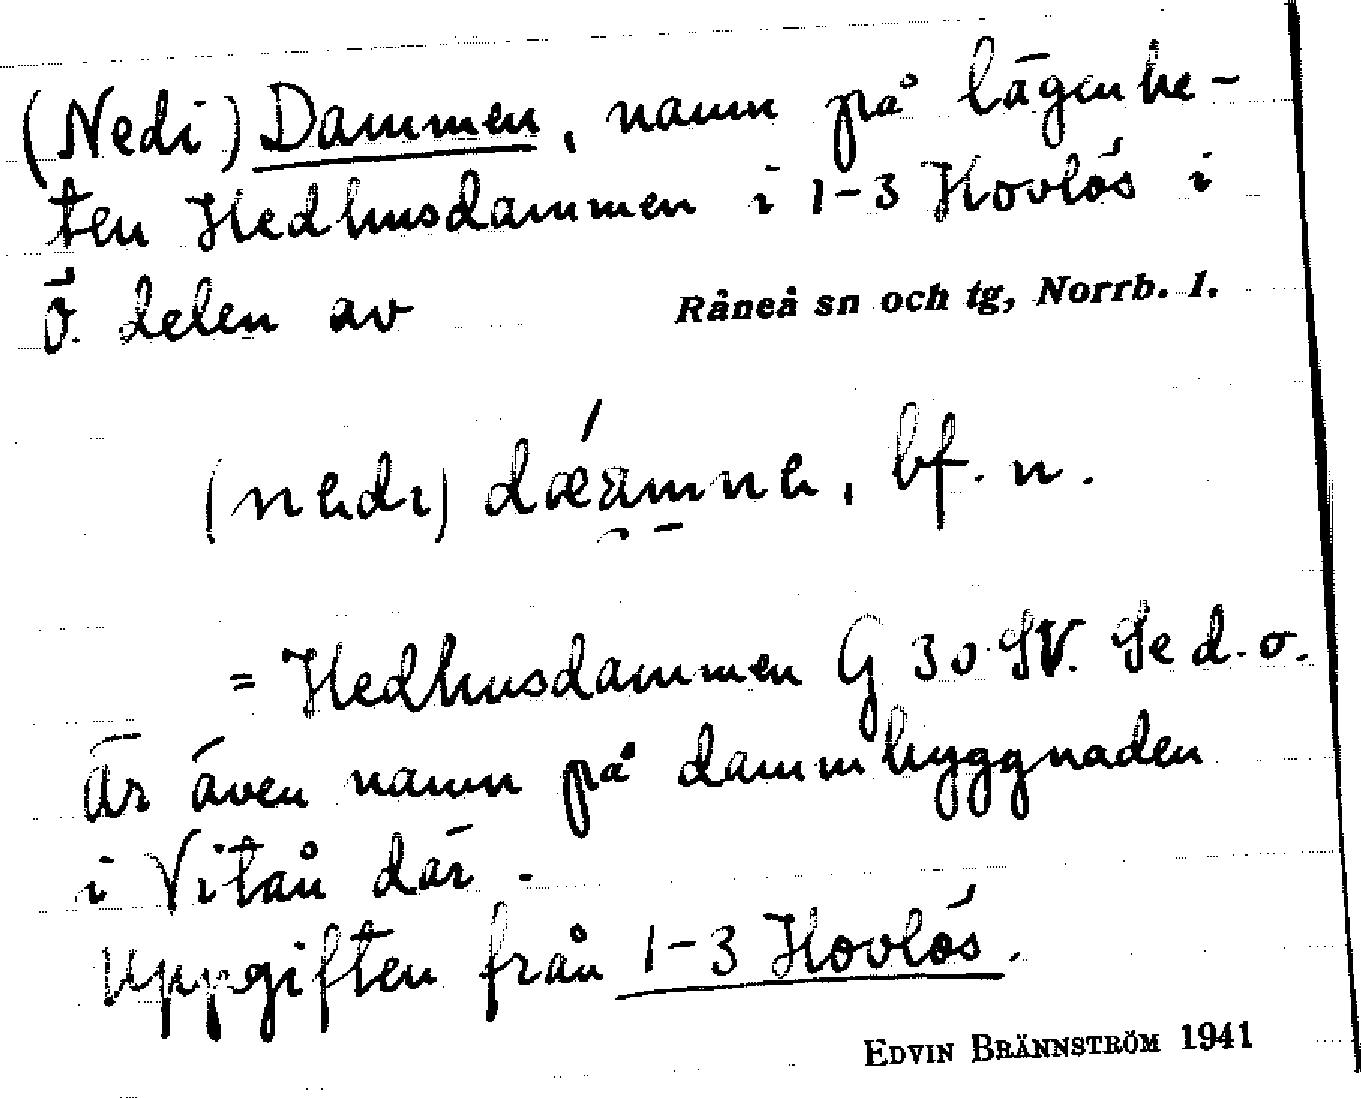 (Nedi) Dammen, namn på lägenhe-
ten Hedhusdammen i 1-3 Hovlös i
Ö. delen av Råneå sn och tg, Norrb. l.
bf. n.
= Hedhusdammen G 30 SV. Se d. o.
Är även namn på dammbyggnaden
i Vitån där.
Uppgiften från 1-3 Hovlös.
EDVIN BRÄNNSTRÖM 1941